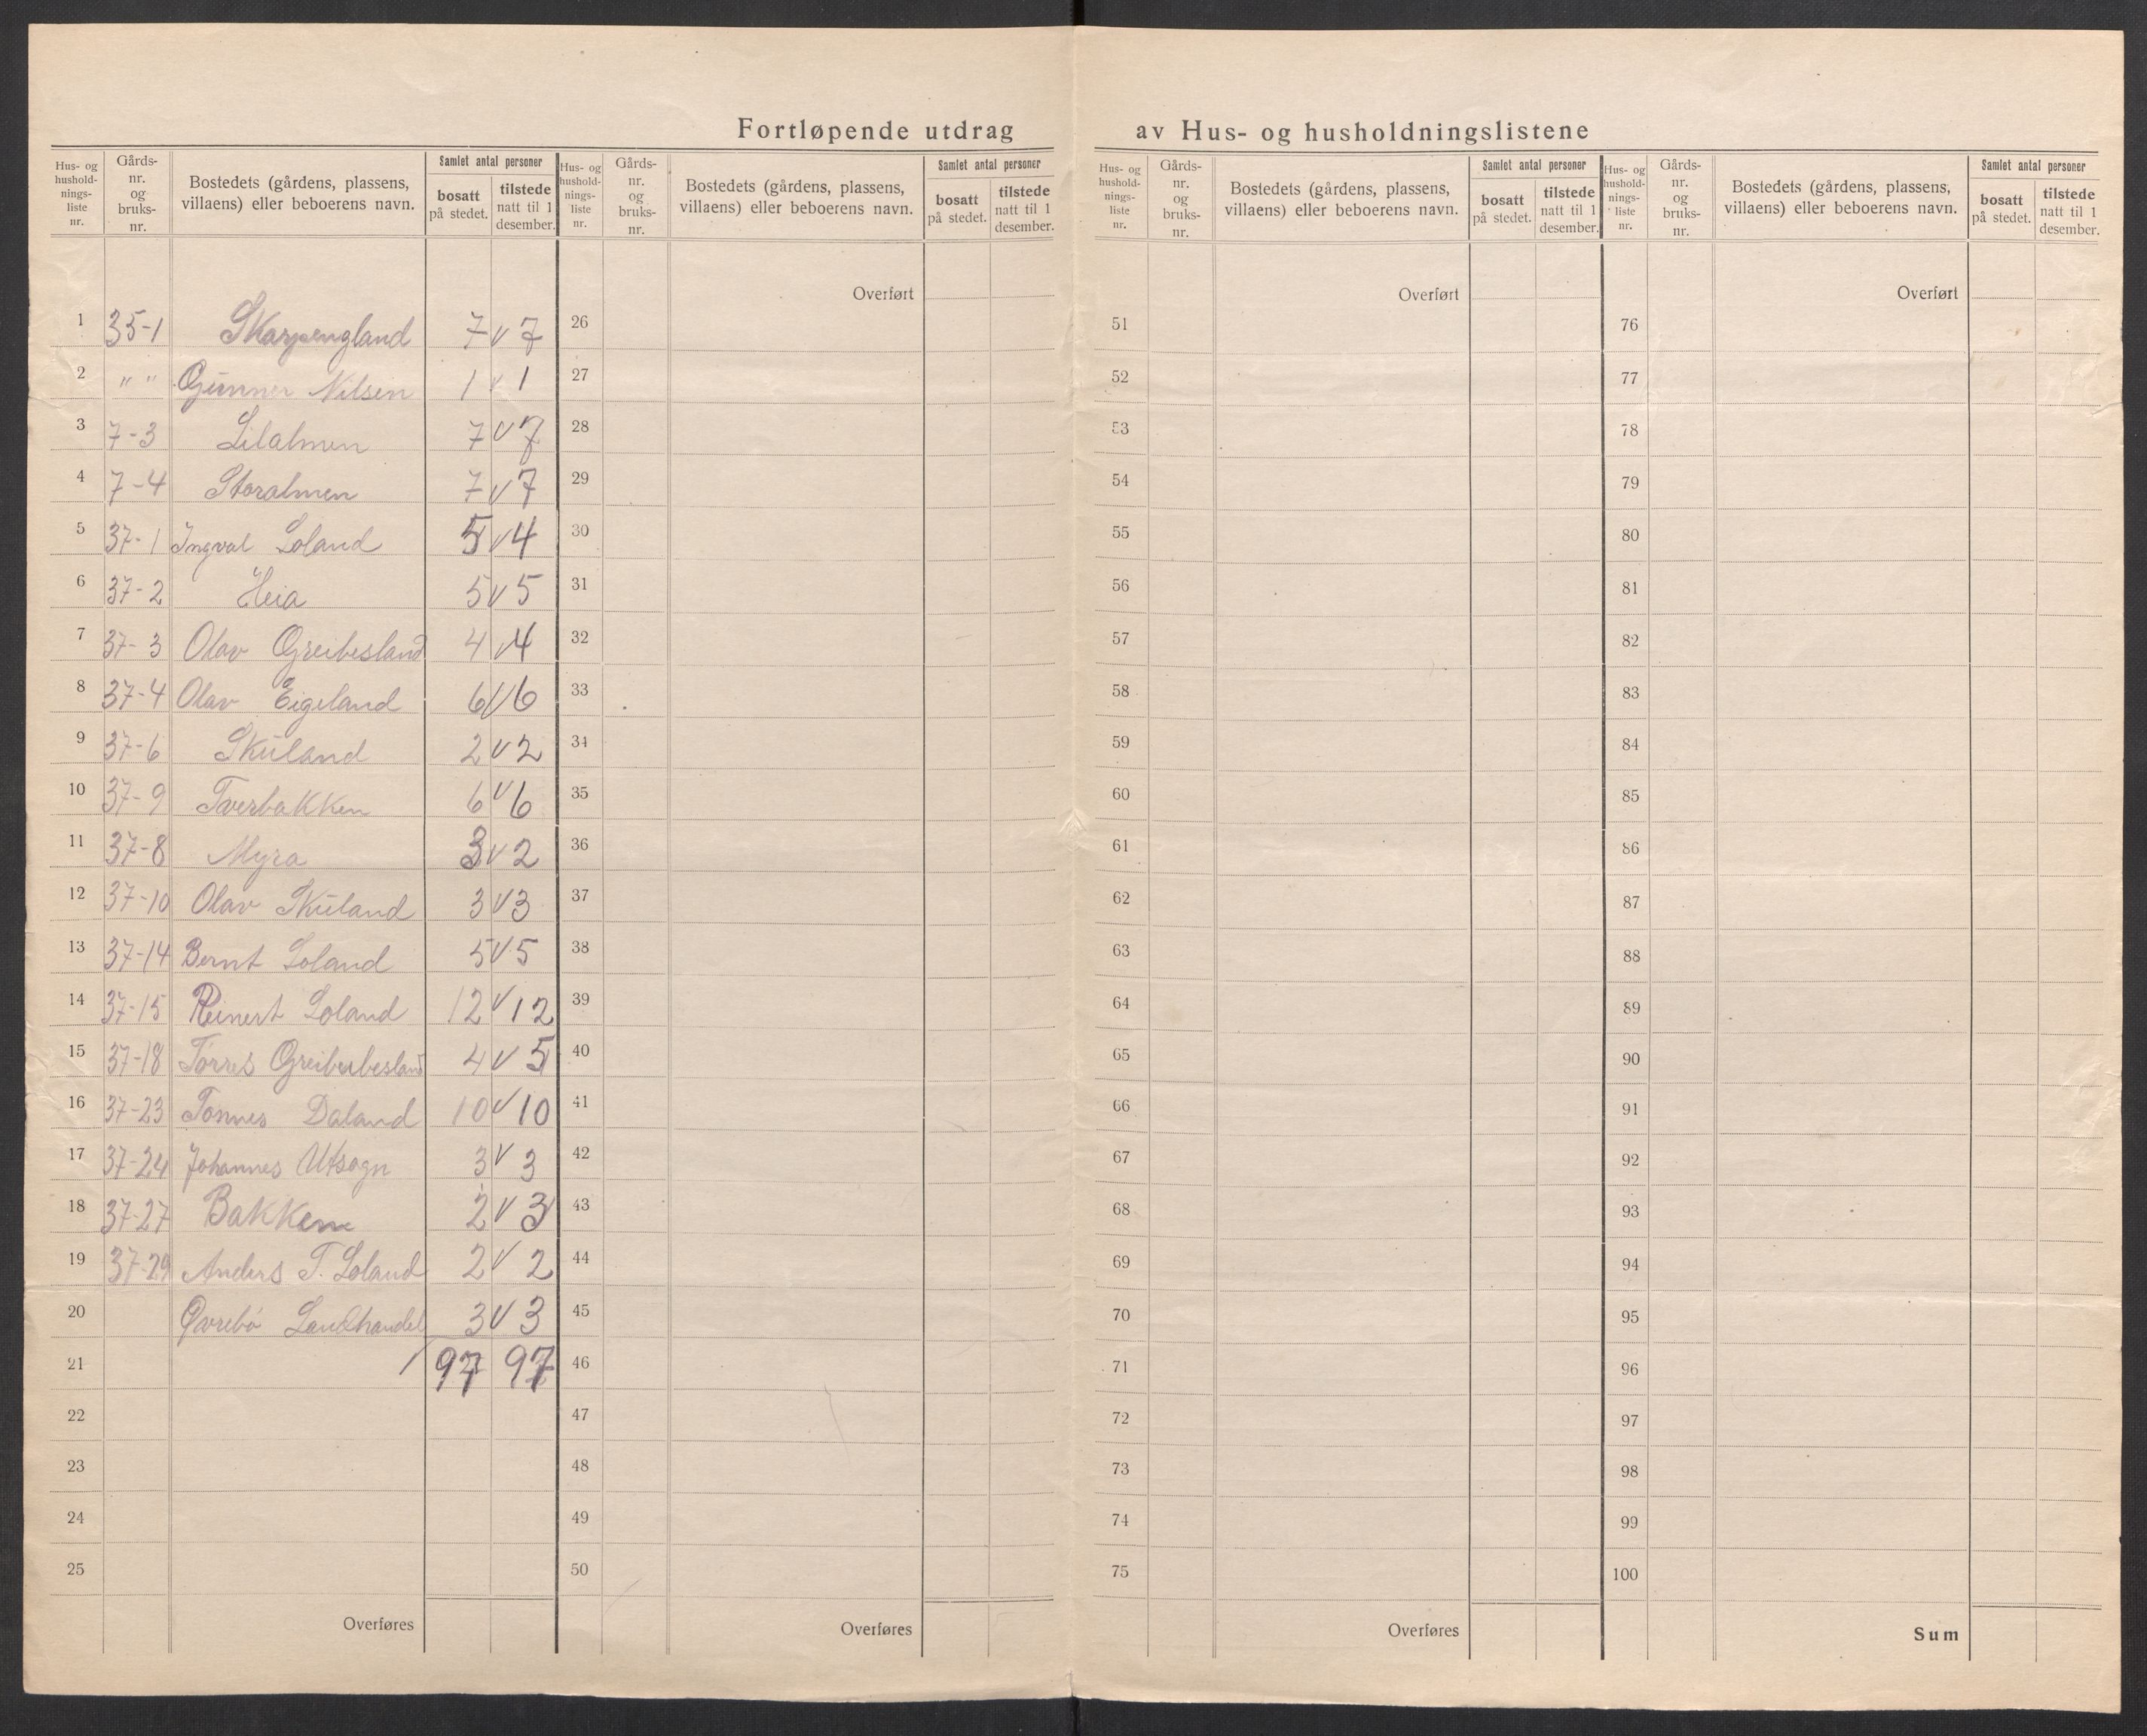 Fortløpende utdrag av Hus- og husholdningslistene
Hus- og hushold- nings- liste nr. | Gårds- nr. og bruks- nr. | Bostedets (gårdens, plassens, villaens) eller beboerens navn. | Samlet antal personer | bosatt på stedet. | tilstede natt til 1 desember.
Hus- og hushold- nings- liste nr. | Gårds- nr. og bruks- nr. | Bostedets (gårdens, plassens, villaens) eller beboerens navn. | Samlet antal personer | bosatt på stedet. | tilstede natt til 1 desember.
Hus- og hushold- nings- liste nr. | Gårds- nr. og bruks- nr. | Bostedets (gårdens, plassens, villaens) eller beboerens navn. | Samlet antal personer | bosatt på stedet. | tilstede natt til 1 desember.
Hus- og hushold- nings- liste nr. | Gårds- nr. og bruks- nr. | Bostedets (gårdens, plassens, villaens) eller beboerens navn. | Samlet antal personer | bosatt på stedet. | tilstede natt til 1 desember.
Overført Overført Overført
1 35-1 Skarpengland 7 v 7 26 51 76
2 " " Gunner Nilsen 1 v 1 27 52 77
3 7-3 Lilalmen 7 v 7 28 53 78
4 7-4 Storalmen 7 v 7 29 54 79
5 37-1 Ingval Loland 5 v 4 30 55 80
6 37-2 Heia 5 v 5 31 56 81
7 37-3 Olav Greibesland 4 v 4 32 57 82
8 37-4 Olav Eigeland 6 v 6 33 58 83
9 37-6 Skuland 2 v 2 34 59 84
10 37-9 Tverbakken 6 v 6 35 60 85
11 37-8 Myra 3 v 2 36 61 86
12 37-10 Olav Skuland 3 v 3 37 62 87
13 37-14 Bernt Loland 5 v 5 38 63 88
14 37-15 Reinert Loland 12 v 12 39 64 89
15 37-18 Torres Greiberbesland 4 v 5 40 65 90
16 37-23 Tønnes Daland 10 v 10 41 66 91
17 37-24 Johannes Utsogn 3 v 3 42 67 92
18 37-27 Bakken 2 v 3 43 68 93
19 37-29 Anders T. Loland 2 v 2 44 69 94
20 Øvrebø Landhandel 3 v 3 45 70 95
21 97 97 46 71 96
22 47 72 97
23 48 73 98
24 49 74 99
25 50 75 100
Overføres Overføres Overføres Sum